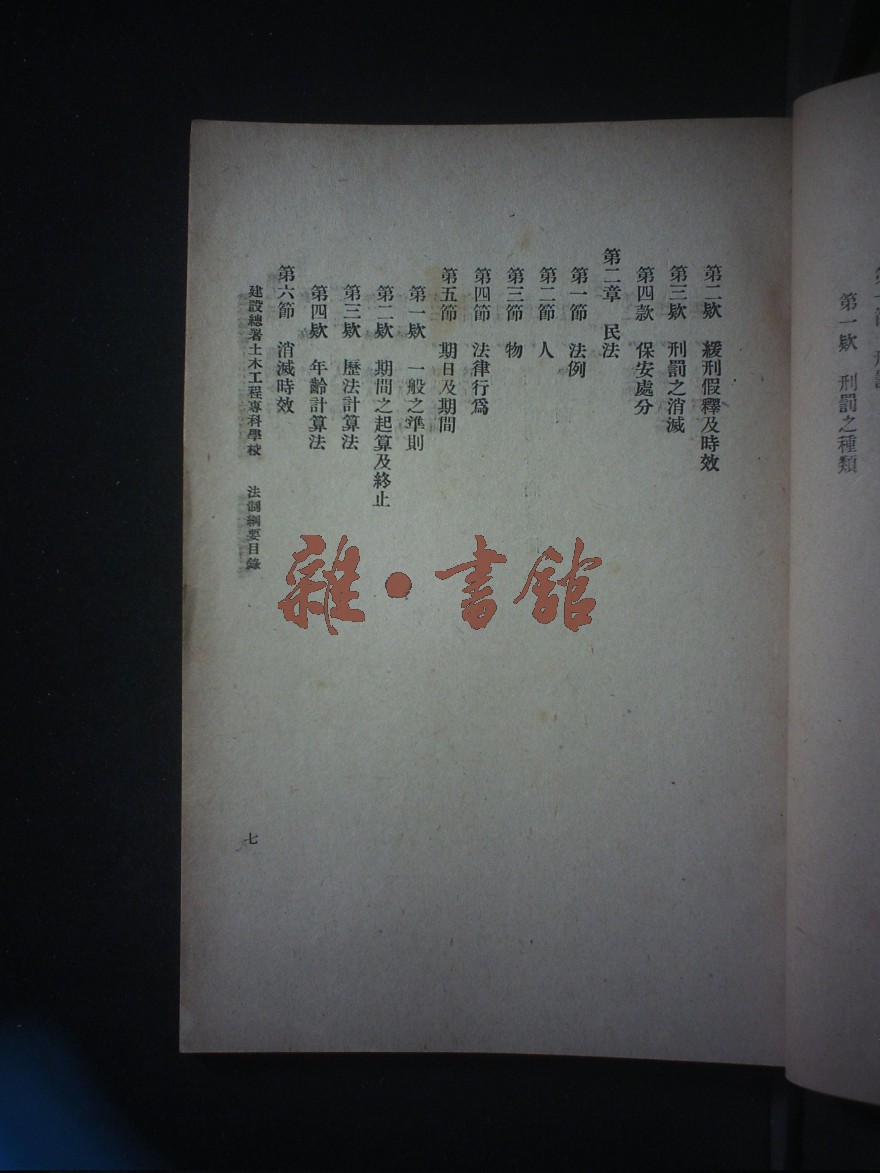 第一欵　刑罰之種類
第二欵　緩刑假釋及時效
第三欵　刑罰之消滅
第四款　保安處分
第二章　民法
第一節　法例
第二節　人
第三節　物
第四節　法律行爲
第五節　期日及期間
第一欵　一般之準則
第二欵　期間之起算及終止
第三欵　歷法計算法
第四欵　年齡計算法
第六節　消滅時效
建設總署土木工程專科學校　法制綱要目錄
七
雜·書館